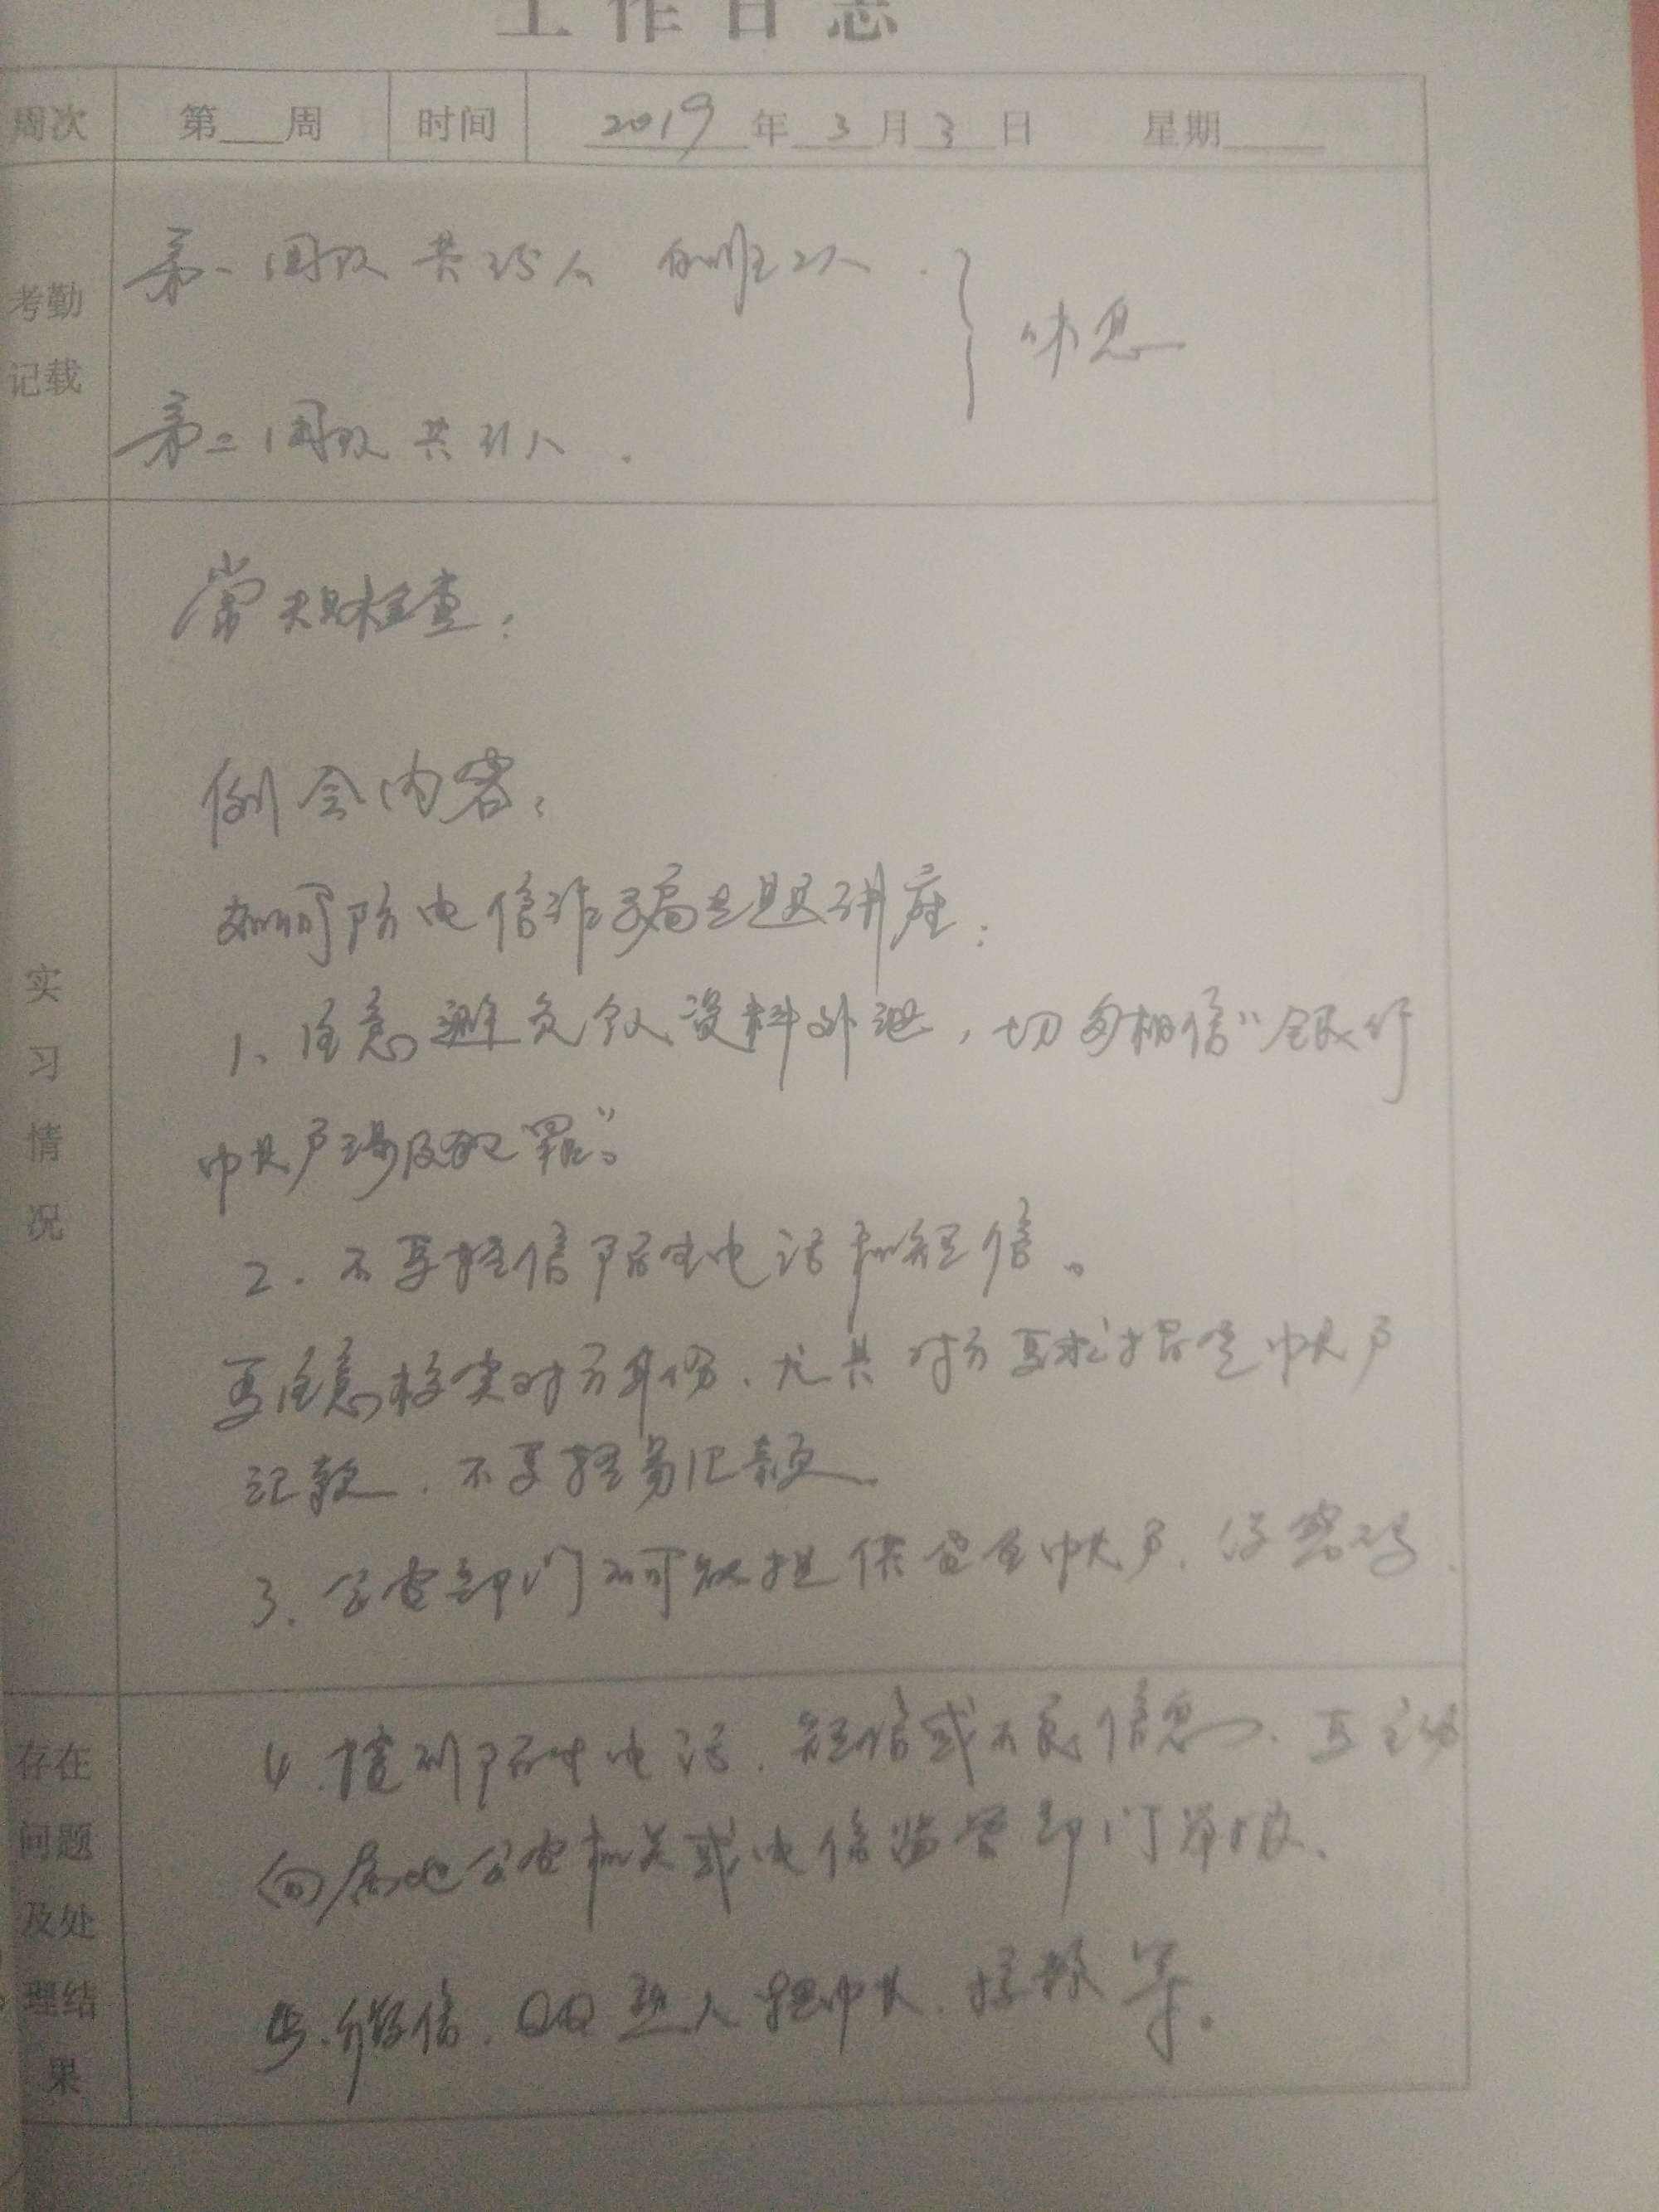 工作日志
周次 第___周 时间 2019年3月3日 星期____
考勤记载
第一团队 共25人 白班2人.
休息
第二团队 共21人.
实习情况
常规检查:
例会内容:
如何防电信诈骗专题讲座:
1、注意避免个人资料外泄,切勿相信"银行
帐户涉及犯罪"。
2. 不要轻信陌生电话和短信。
要注意核实对方身份、尤其对方要求指定帐户
汇款、不要轻易汇款.
3. 公安部门不可能提供安全帐户、
存在问题及处理结果
4. 接到陌生电话、短信或不良信息、要主动
向属地公安机关或电信监管部门举报、
5. 微信、QQ 熟人 等。